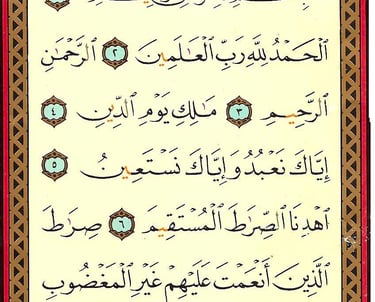 ٱلْحَمْدُ لِلَّهِ رَبِّ ٱلْعَٰلَمِينَ ٢ ٱلرَّحْمَٰنِ
ٱلرَّحِيمِ ٣ مَٰلِكِ يَوْمِ ٱلدِّينِ ٤
إِيَّاكَ نَعْبُدُ وَإِيَّاكَ نَسْتَعِينُ ٥
ٱهْدِنَا ٱلصِّرَٰطَ ٱلْمُسْتَقِيمَ ٦ صِرَٰطَ
ٱلَّذِينَ أَنْعَمْتَ عَلَيْهِمْ غَيْرِ ٱلْمَغْضُوبِ